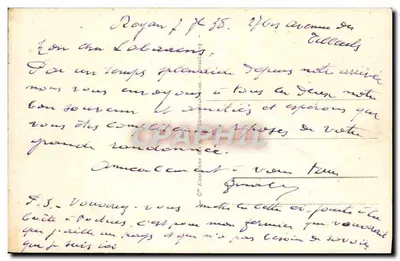 Royan 7 38. 27 bis avenue des
Tilleuls
Mon cher Labarrens
Par un temps splendide depuis notre arrivée
nous vous envoyons à tous les deux notre
bon souvenir et amitiés et espérons que
vous êtes reposés de votre
grande randonnée.
Amicalement à vous tous
P.S. - vous mettre la lettre ci jointe à la
boîte à c'est pour mon fermier qui voudrait
que j'aille au pays et qui n'a pas besoin de savoir
que je suis ici